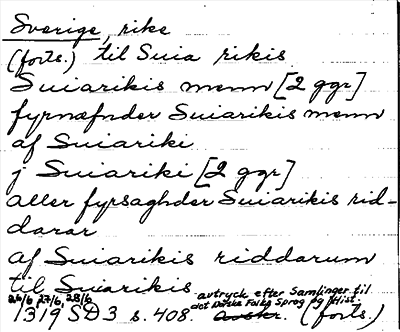 Sverige, rike
(forts.) til Suia rikis
Suiarikis menn [2 ggr]
fyrnæfnder Suiarikis menn
af Suiariki
j Suiariki [2 ggr]
aller fyrsaghder Suiarikis rid-
darar
af Suiarikis riddarum
til Suiarikis
26/6 27/6, 28/6 avtryck efter Samlinger til
det Norske Folks Sprog og Hist.
1319 SD 3 s. 408. Avskr. (forts.)